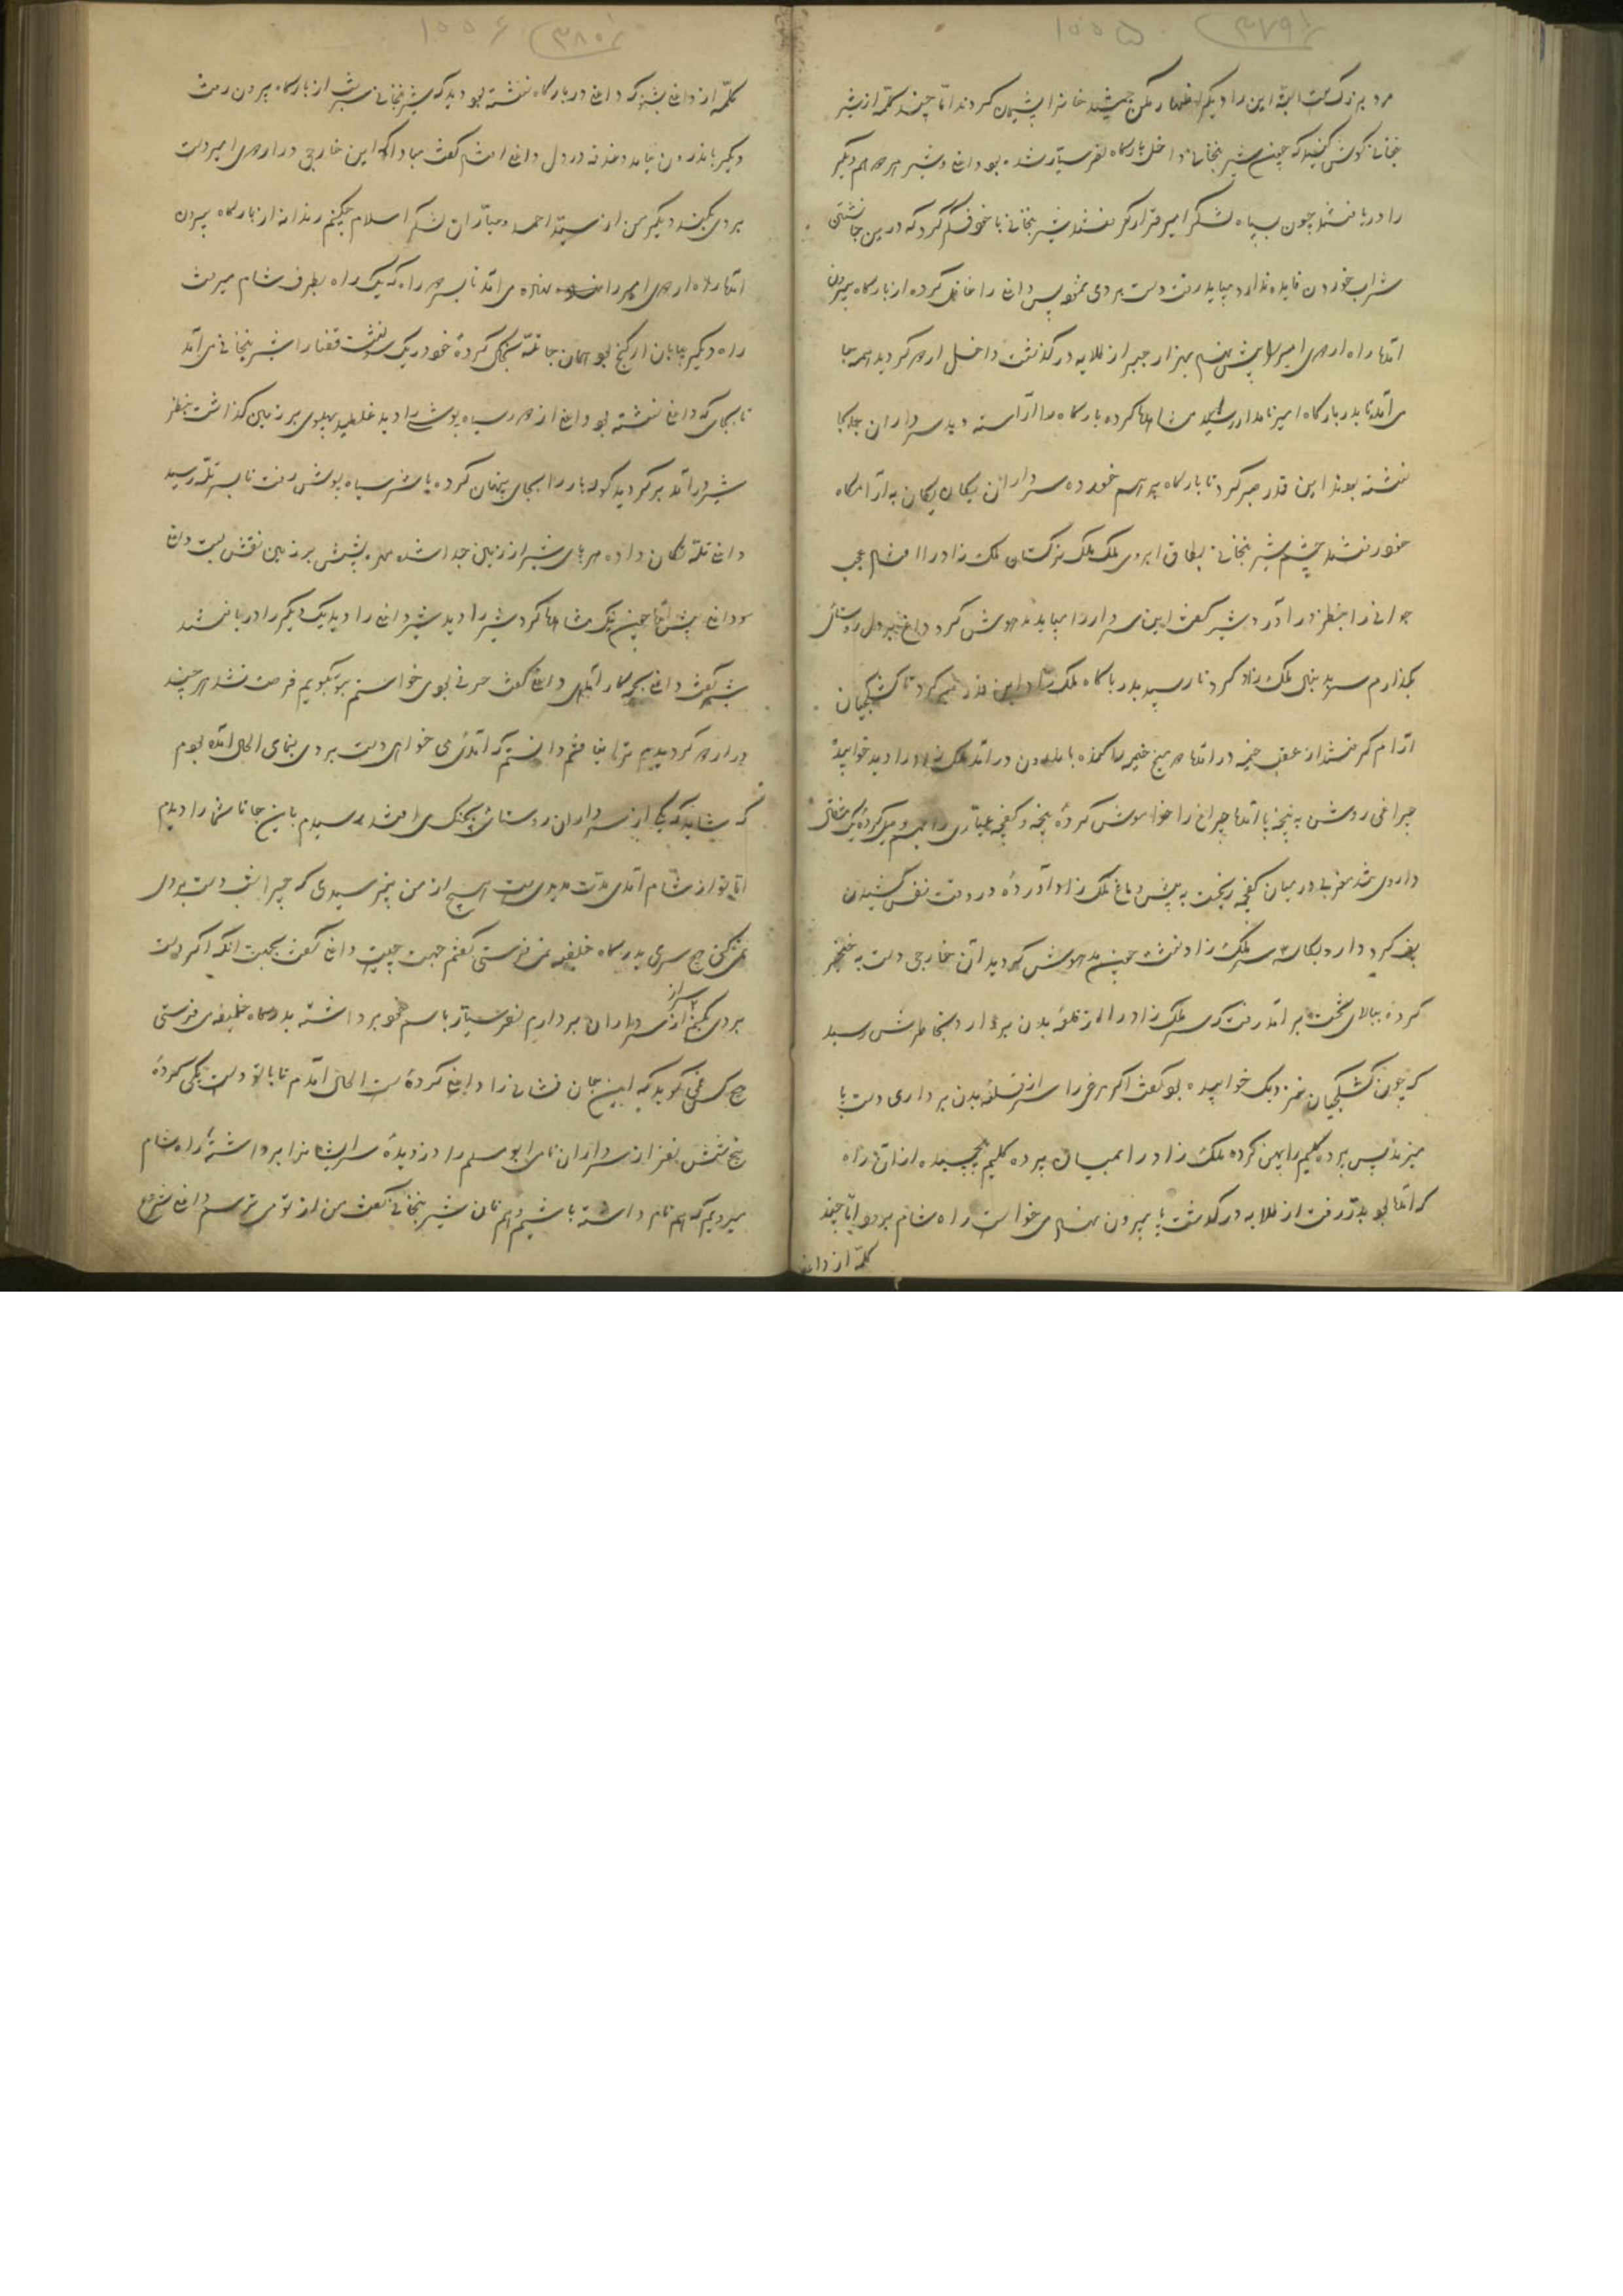 ۳۷۹
۱۰۰۵
مرد بزرگ است البته این را دیگر اظهار مکن جمشید خانرا پشیمان کردند اما چند کلمه از شیر
نجانی گوش کنید که چون شیر نجانی داخل بارگاه نصر سیار شده بود داغ و شیر هر دو هم دیگر
را دریافتند چون سپاه لشکر امیر قرار گرفتند شیر نجانی با خود فکر کرد که درین جا نشتن
شراب خوردن فایده ندارد میباید رفت دست بردی نمود پس داغ را غافل کرده از بارگاه بیرون
آمد راه اردوی امیر را پیش بهزار جبر از طلایه در گذشت داخل اردو گردید همه جا
می آمد تا بدر بارگاه امیر نامدار رسید مشاهده کرده بارگاه را آراسته دید سرداران جابجا
نشسته بودند این قدر صبر کرد تا بارگاه بر هم خورده سرداران یکان یکان به آرامگاه
خود رفتند چشم شیر نجانی بطاق ابروی ملک ملک ترکستان ملک زاد را افتاد عجب
جوانی را بنظر در آورد شیر گفت این سردار را میباید بیهوش کرد داغ بر دل روستائی
بگذارم سر بدنبال ملک زاد کرد تا رسید بدر بارگاه ملک زاد این قدر صبر کرد تا کشکچیان
آرام گرفتند از عقب خیمه در آمد میخ خیمه را کنده باندرون در آمد ملک زاد را دید خوابیده
چراغی روشن به پنجه پا آمد چراغ را خاموش کرده پنجه و کفچه عیاری را بهم وصل کرده یک مثقال
داروی در میان کفچه ریخت به پیش دماغ ملک زاد آورده در وقت نفس کشیدن
پف کرد دارو بکاسه سر ملک زاد نشست چون بیهوش گردید آن خارجی دست به خنجر
کرده ببالای تخت بر آمد رفت که سر ملک زاد را از قلعه بدن بردارد بخاطرش رسید
که چون کشکچیان نزدیک خوابیده بود گفت اگر مرغی را سر از قلعه بدن برداری دست پا
میزند پس پرده گلیم را پهن کرده ملک زاد را میان پرده گلیم پیچیده از آن راه
که آمده بود بدر رفت از طلایه در گذشت پا بیرون نهاد می خواست راه شام برود اما چند
کلمه از داغ
۳۸۰
۱۰۰۶
کلمه از داغ بشنو که داغ در بارگاه نشسته بود دید که شیر نجانی سر شب از بارگاه بیرون رفت
دیگر باندرون نیامد دغدغه در دل داغ افتاد گفت مبادا که این خارجی در اردوی امیر دست
بردی بکند دیگر من از سید احمد و مبارزان لشکر اسلام چکنم رندانه از بارگاه بیرون
آمد راه اردوی امیر را می آمد تا بسر دو راه که یک راه بطرف شام میرفت
راه دیگر بیابان ارکنج بود همان جا تله سنگی کرده خود در یک سو نشست قضا را شیر نجانی می آمد
تا بجای که داغ نشسته بود داغ از دور سیاه پوشی را دید غلطید پهلوی بر زمین گذاشت بنظر
شیر در آمد برگردید کوله بار را بجای پنهان کرده پا شد سیاه پوش رفت تا بسر تله رسید
داغ تله تکان داده هر پای شیر از زمین جدا شده مهره پشتش بر زمین نقش بست داغ
پیش آمد چون نیک مشاهده کرد شیر را دید شیر داغ را دید یک دیگر را دریافتند
شیر گفت داغ بچه کار آمدی داغ گفت حرفی بود می خواستم بتو بگویم فرصت نشد هر چند
در اردو گردیدم ترا نیافتم دانستم که آمدی می خواهی دست بردی بنمای الحال آمده بودم
که شاید که یکی از سرداران روستائی بچنگ می افتد رسیدم باین جا تا شما را دیدم
اما تو از شام آمدی مدت مدیدی ست هیچ از من نپرسیدی که چرا شب دست بردی
نمیکنی و سری بدرگاه خلیفه نمی فرستی گفتم جهت چیست داغ گفت بجهت آنکه اگر دست
بردی بکنم سر از سرداران بردارم نصر سیار باسم خود برداشته بدرگاه خلیفه می فرستی
و کس نمی گوید که این جان فشانی را داغ کرده است الحال آمدم تا با تو دست یکی کرده
پنج شش نفر از سرداران نامی ابومسلم را دزدیده سر ایشانرا برداشته راه شام
میرویم که هم نام داشته باشیم و هم نان شیر نجانی گفت من از تو می ترسم داغ شروع